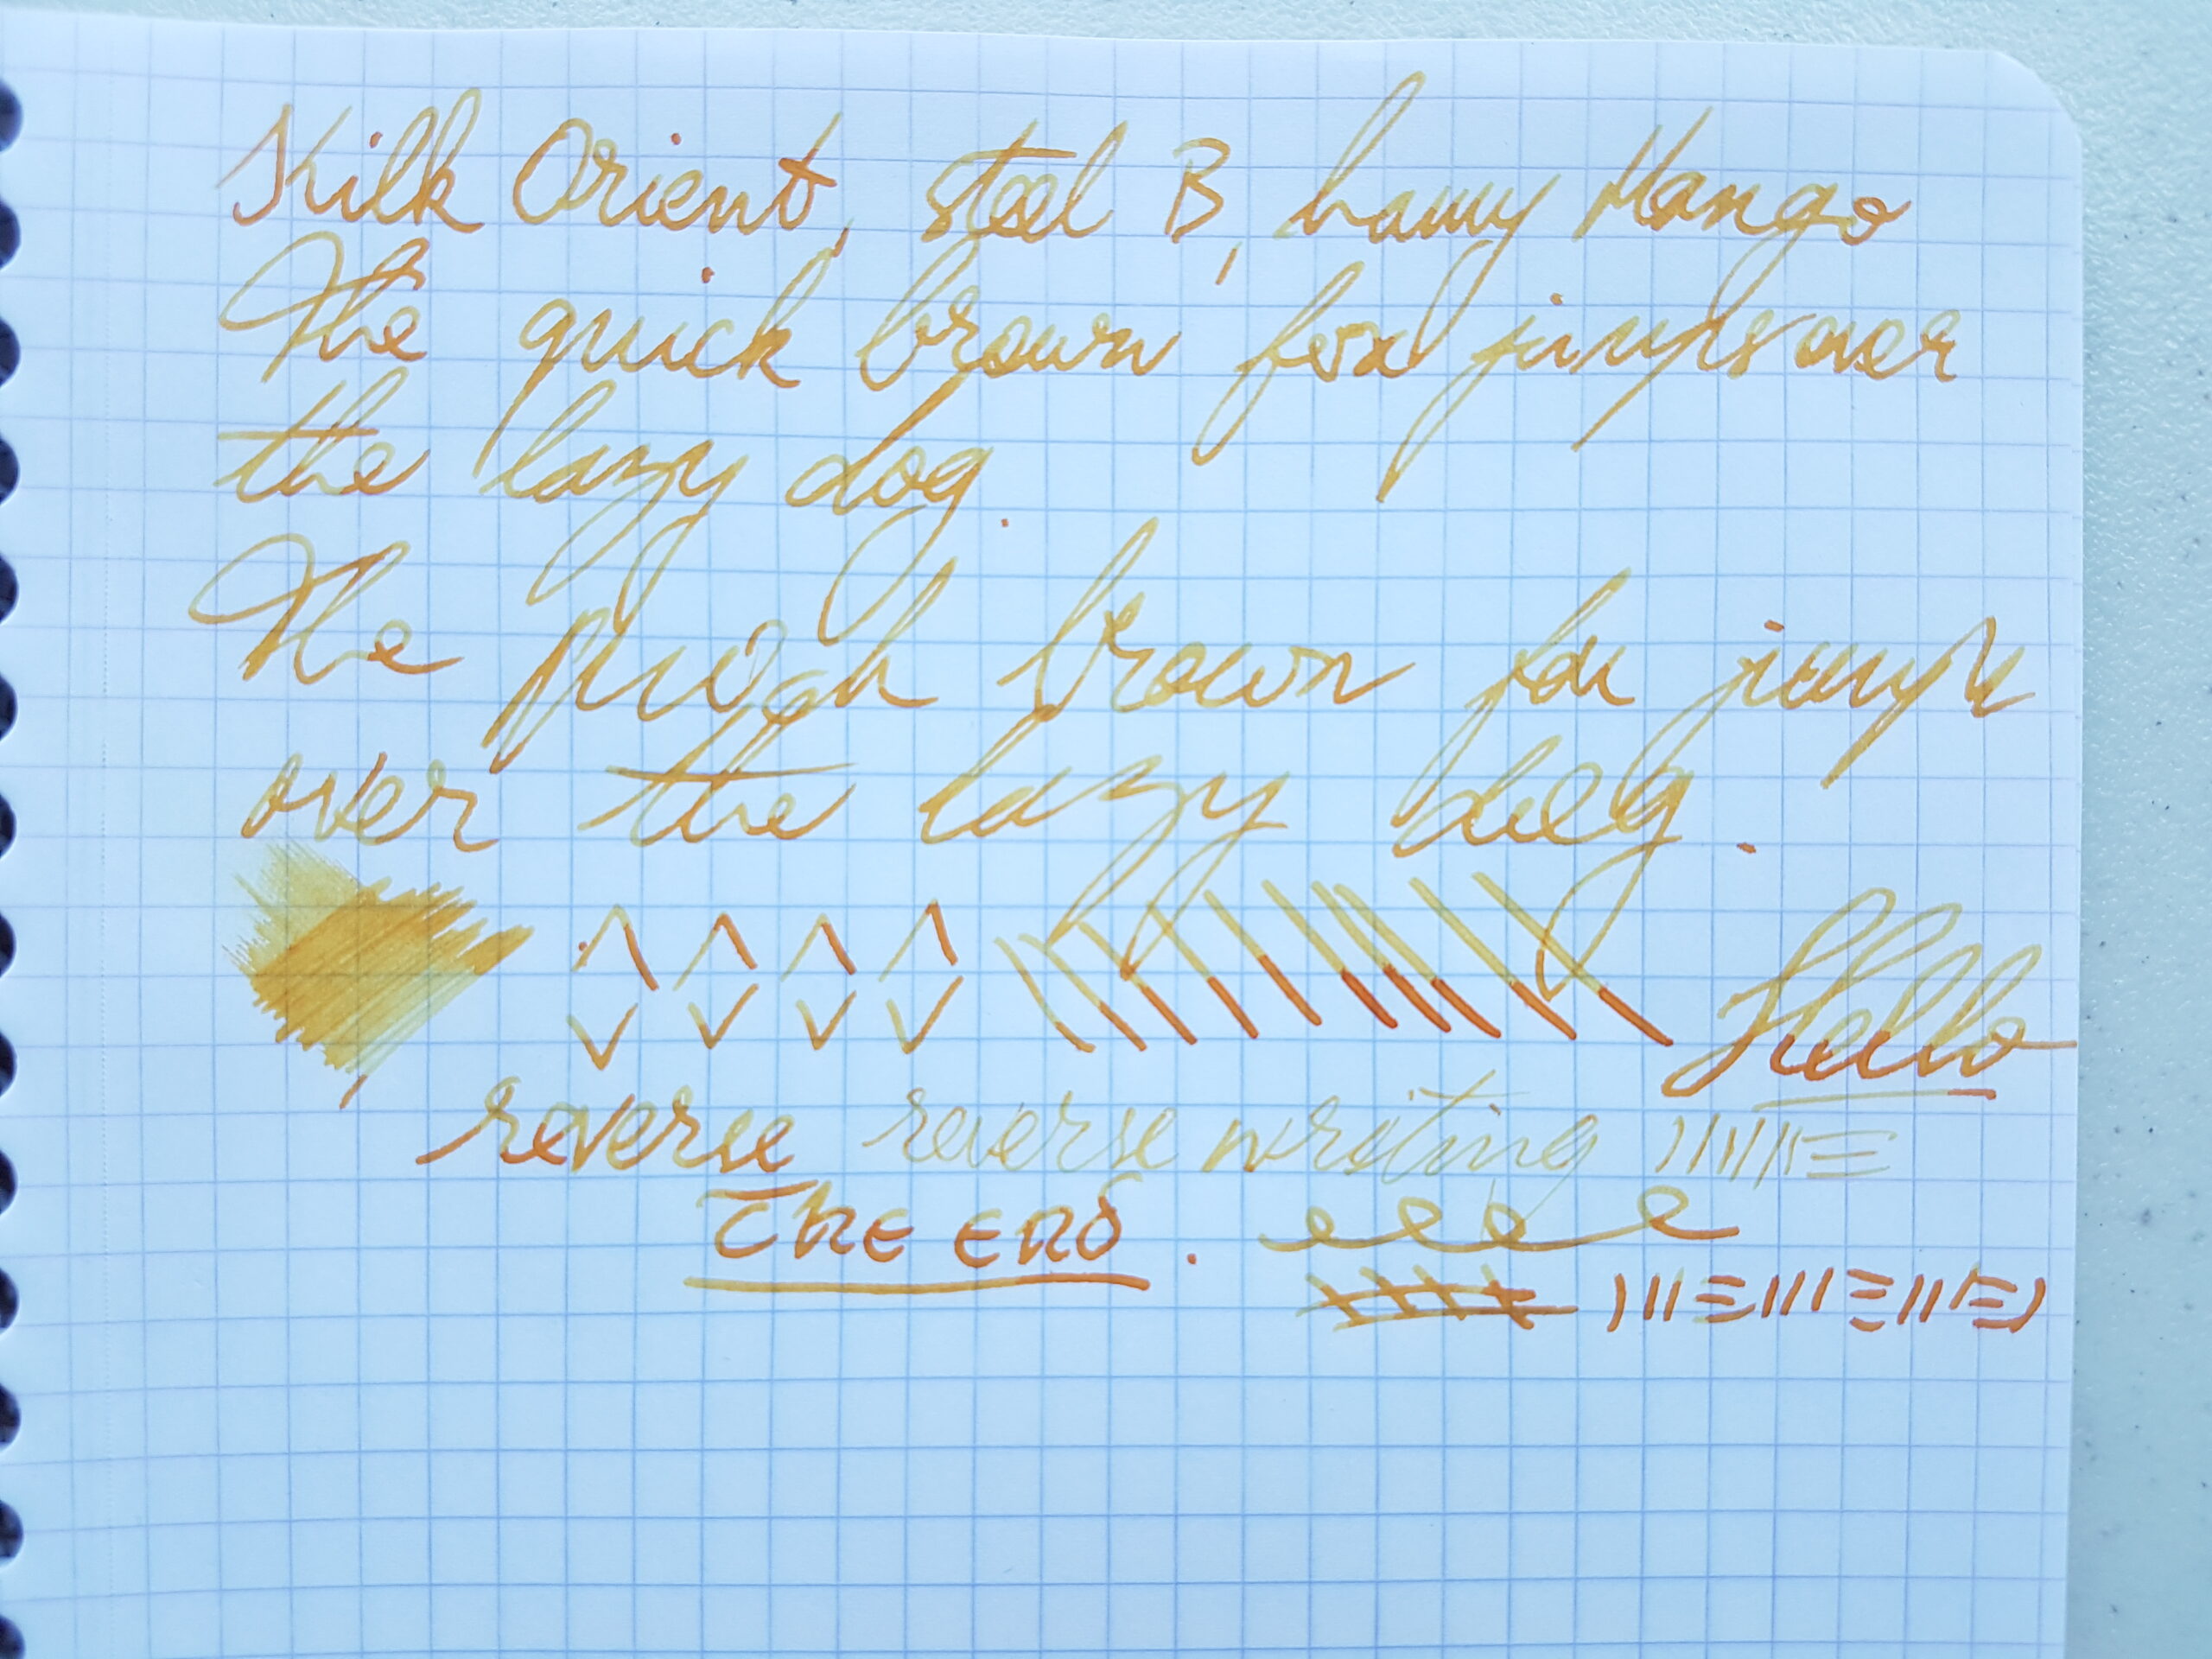 Kilk Orient, steel B, Lamy Mango
The quick brown fox jumps over
the lazy dog.
The brown fox jumps
over the lazy dog.
Hello
reverse reverse writing
The End.